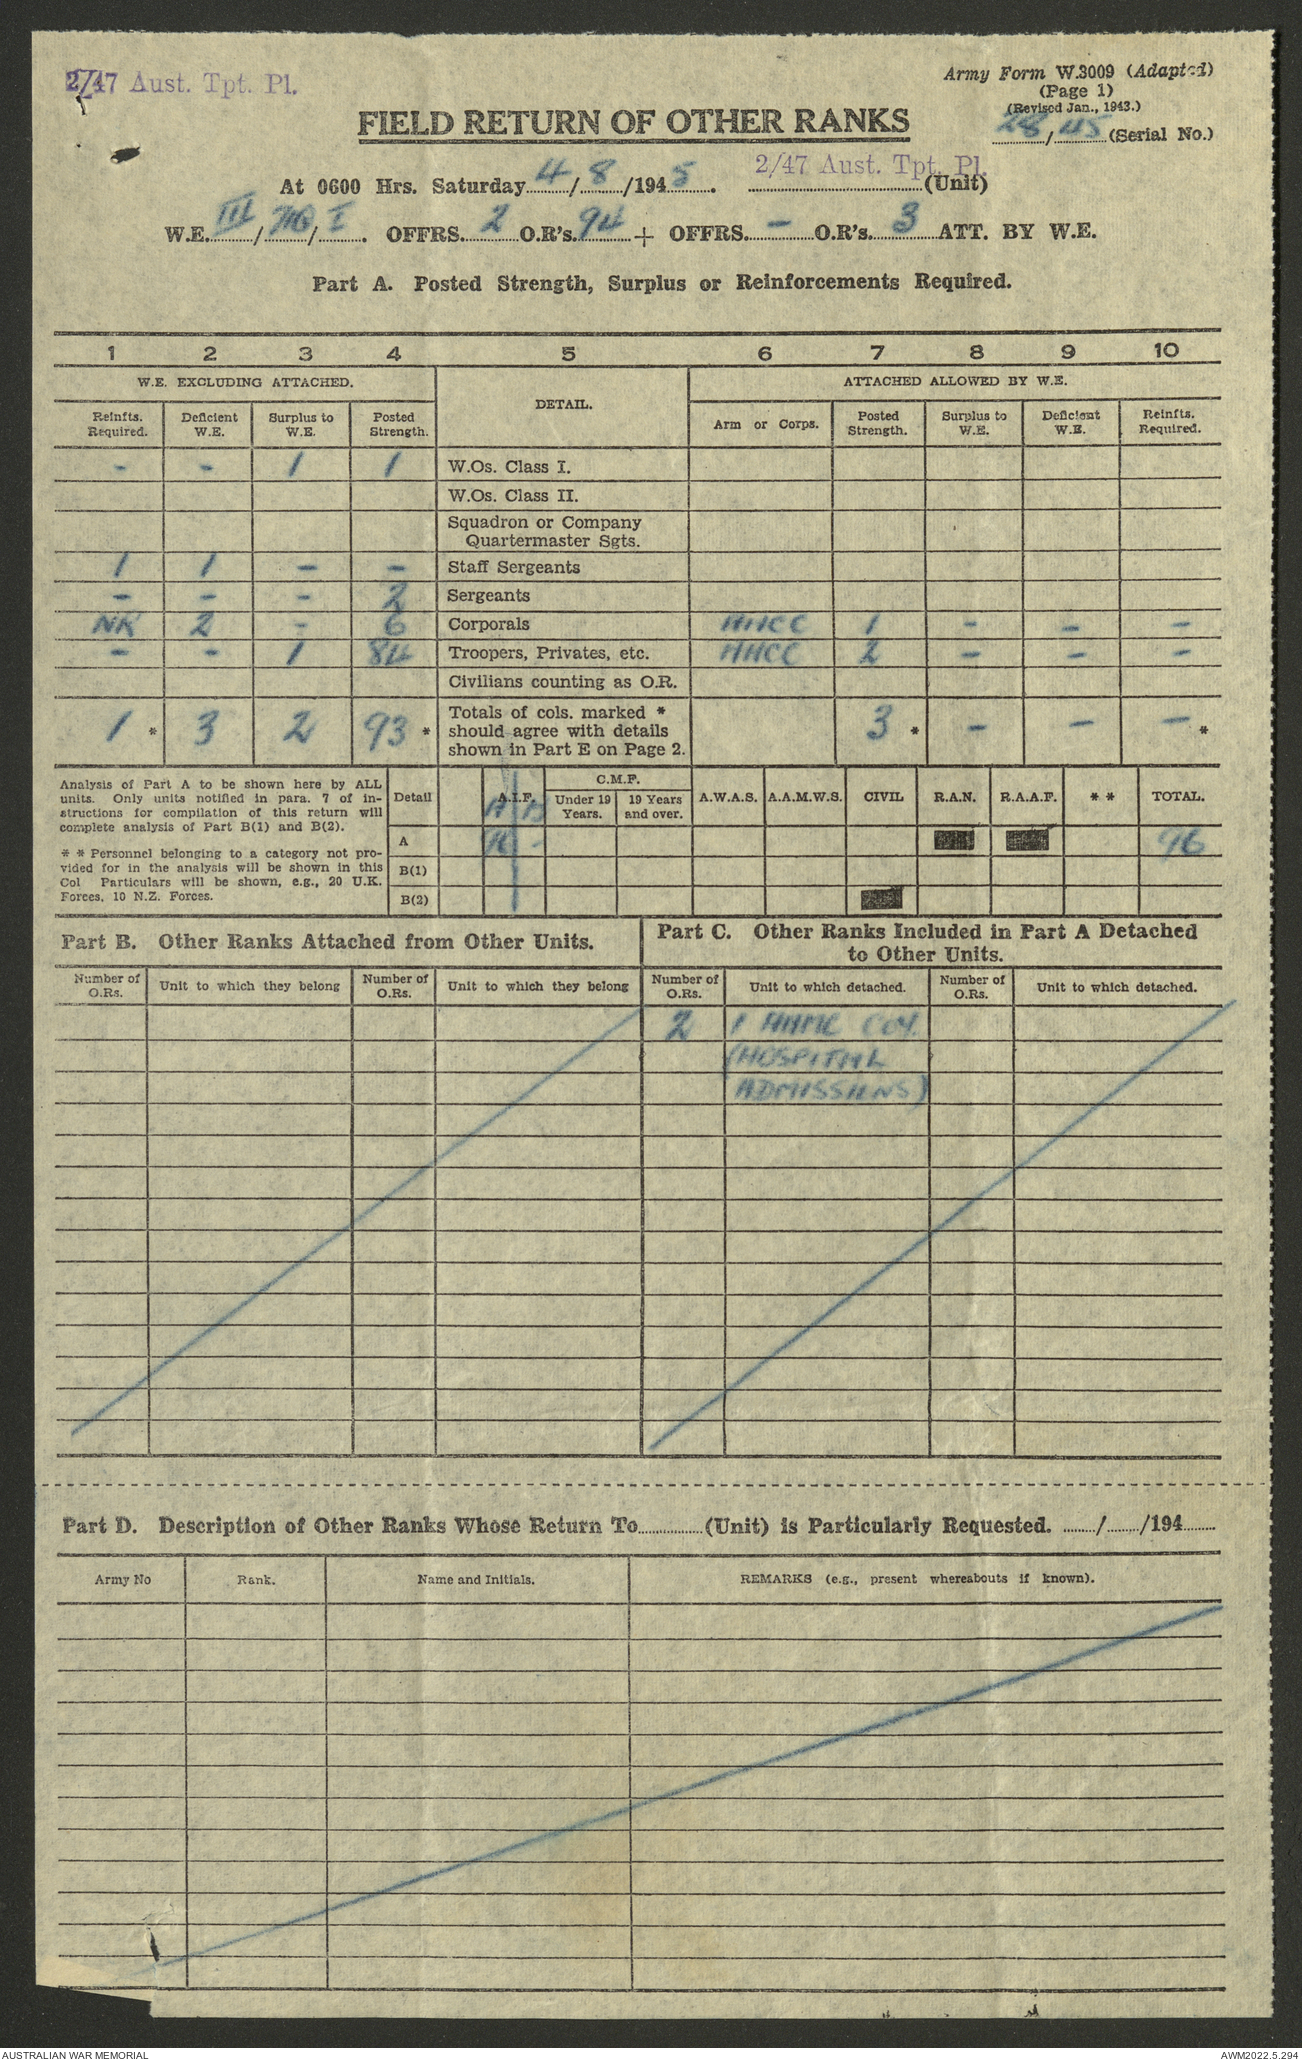 2/47 Aust. Tpt. Pl.
Army Form W.3009 (Adapted)
(Page 1)
(Revised Jan., 1943.)
28/45 (Serial No.)
FIELD RETURN OF OTHER RANKS
At 0600 Hrs. Saturday 4/8/1945. 2/47 Aust. Tpt. Pl. (Unit)
W.E. III/ / I. OFFRS. 2 O.R's. 94 + OFFRS. - O.R's. 3 ATT. BY W.E.
Part A. Posted Strength, Surplus or Reinforcements Required.
1 2 3 4 5 6 7 8 9 10
W.E. EXCLUDING ATTACHED. DETAIL. ATTACHED ALLOWED BY W.E.
Reinfts. Required. Deficient W.E. Surplus to W.E. Posted Strength. Arm or Corps. Posted Strength. Surplus to W.E. Deficient W.E. Reinfts. Required.
- - 1 1 W.Os. Class I.
W.Os. Class II.
Squadron or Company
Quartermaster Sgts.
1 1 - - Staff Sergeants
- - - 2 Sergeants
NR 2 - 6 Corporals AACC 1 - - -
- - 1 84 Troopers, Privates, etc. AACC 2 - - -
Civilians counting as O.R.
1 * 3 2 93 * Totals of cols. marked * should agree with details shown in Part E on Page 2. 3 * - - - *
Analysis of Part A to be shown here by ALL
units. Only units notified in para. 7 of in-
structions for compilation of this return will
complete analysis of Part B(1) and B(2).
* * Personnel belonging to a category not pro-
vided for in the analysis will be shown in this
Col Particulars will be shown, e.g., 20 U.K.
Forces, 10 N.Z. Forces.
Detail A.I.F. C.M.F. A.W.A.S. A.A.M.W.S. CIVIL R.A.N. R.A.A.F. * * TOTAL.
A B Under 19 Years. 19 Years and over.
A 96 - 96
B(1)
B(2)
Part B. Other Ranks Attached from Other Units.
Part C. Other Ranks Included in Part A Detached
to Other Units.
Number of O.Rs. Unit to which they belong Number of O.Rs. Unit to which they belong Number of O.Rs. Unit to which detached. Number of O.Rs. Unit to which detached.
2 1 AAMC COY.
(HOSPITAL
ADMISSIONS)
Part D. Description of Other Ranks Whose Return To (Unit) is Particularly Requested. / /194
Army No Rank. Name and Initials. REMARKS (e.g., present whereabouts if known).
AUSTRALIAN WAR MEMORIAL AWM2022.5.294